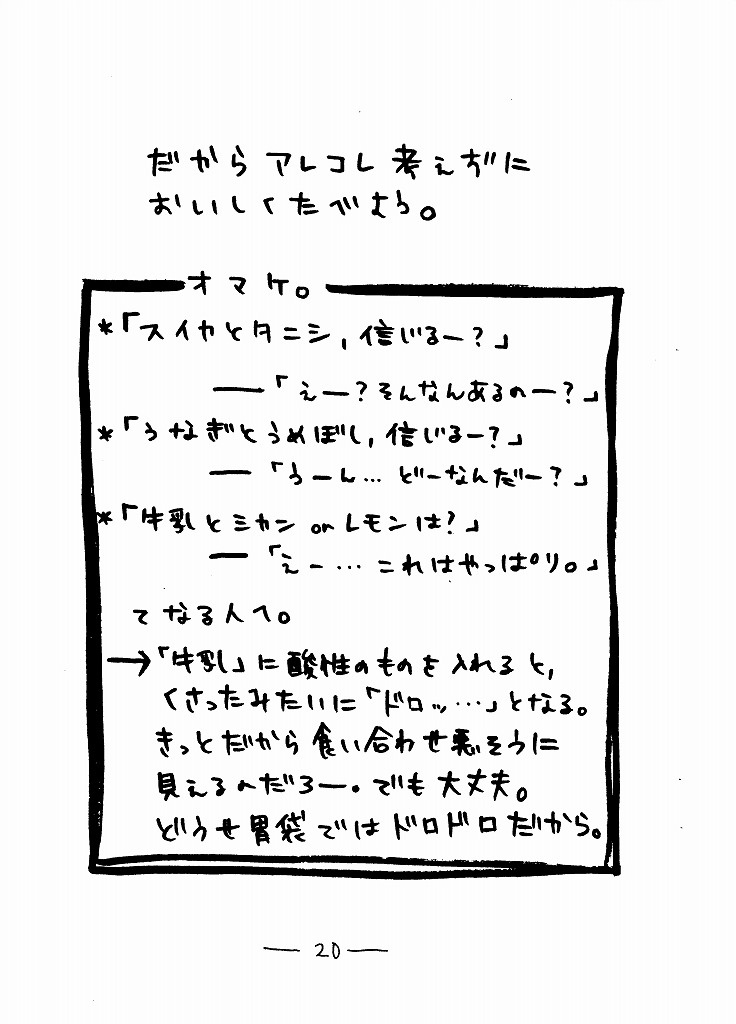 だからアレコレ考えずに
おいしくたべむら。
オマケ。
*「スイカとタニシ,信じるー?」
――「えー?そんなんあるのー?」
*「うなぎとうめぼし,信じるー?」
――「うーん…どーなんだー?」
*「牛乳とミカン or レモンは?」
――「えー…これはやっぱり。」
てなる人へ。
→「牛乳」に酸性のものを入れると,
くさったみたいに「ドロッ…」となる。
きっとだから食い合わせ悪そうに
見えるのだろー。でも大丈夫。
どうせ胃袋ではドロドロだから。
―20―